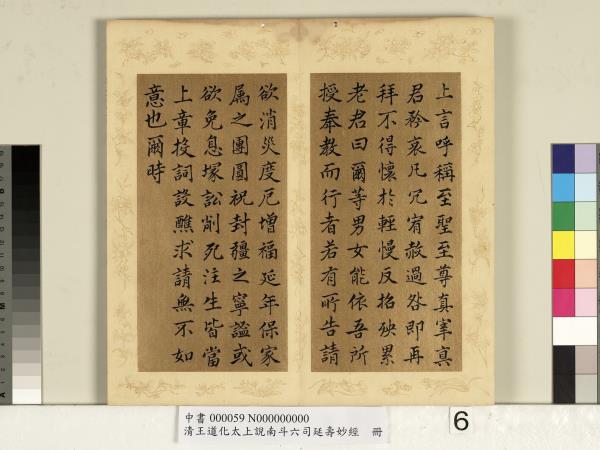 上言呼稱至聖至尊真宰真
君矜哀凡冗宥赦過咎即再
拜不得懷於輕慢反招殃累
老君曰爾等男女能依吾所
授奉教而行者若有所告請
欲消災度厄增福延年保家
属之團圓祝封疆之寧謐或
欲免息塚訟削死注生皆當
上章投詞設醮求請無不如
意也爾時
中書 000059 N000000000
清王道化太上說南斗六司延壽妙經 冊
6